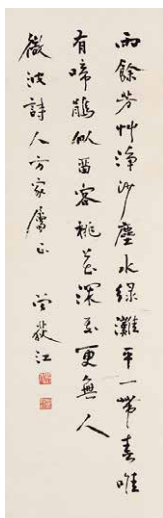 雨餘芳艸淨沙塵水綠灘平一帶春唯
有啼鵑似留客桃花深處更無人
微波詩人方家屬正